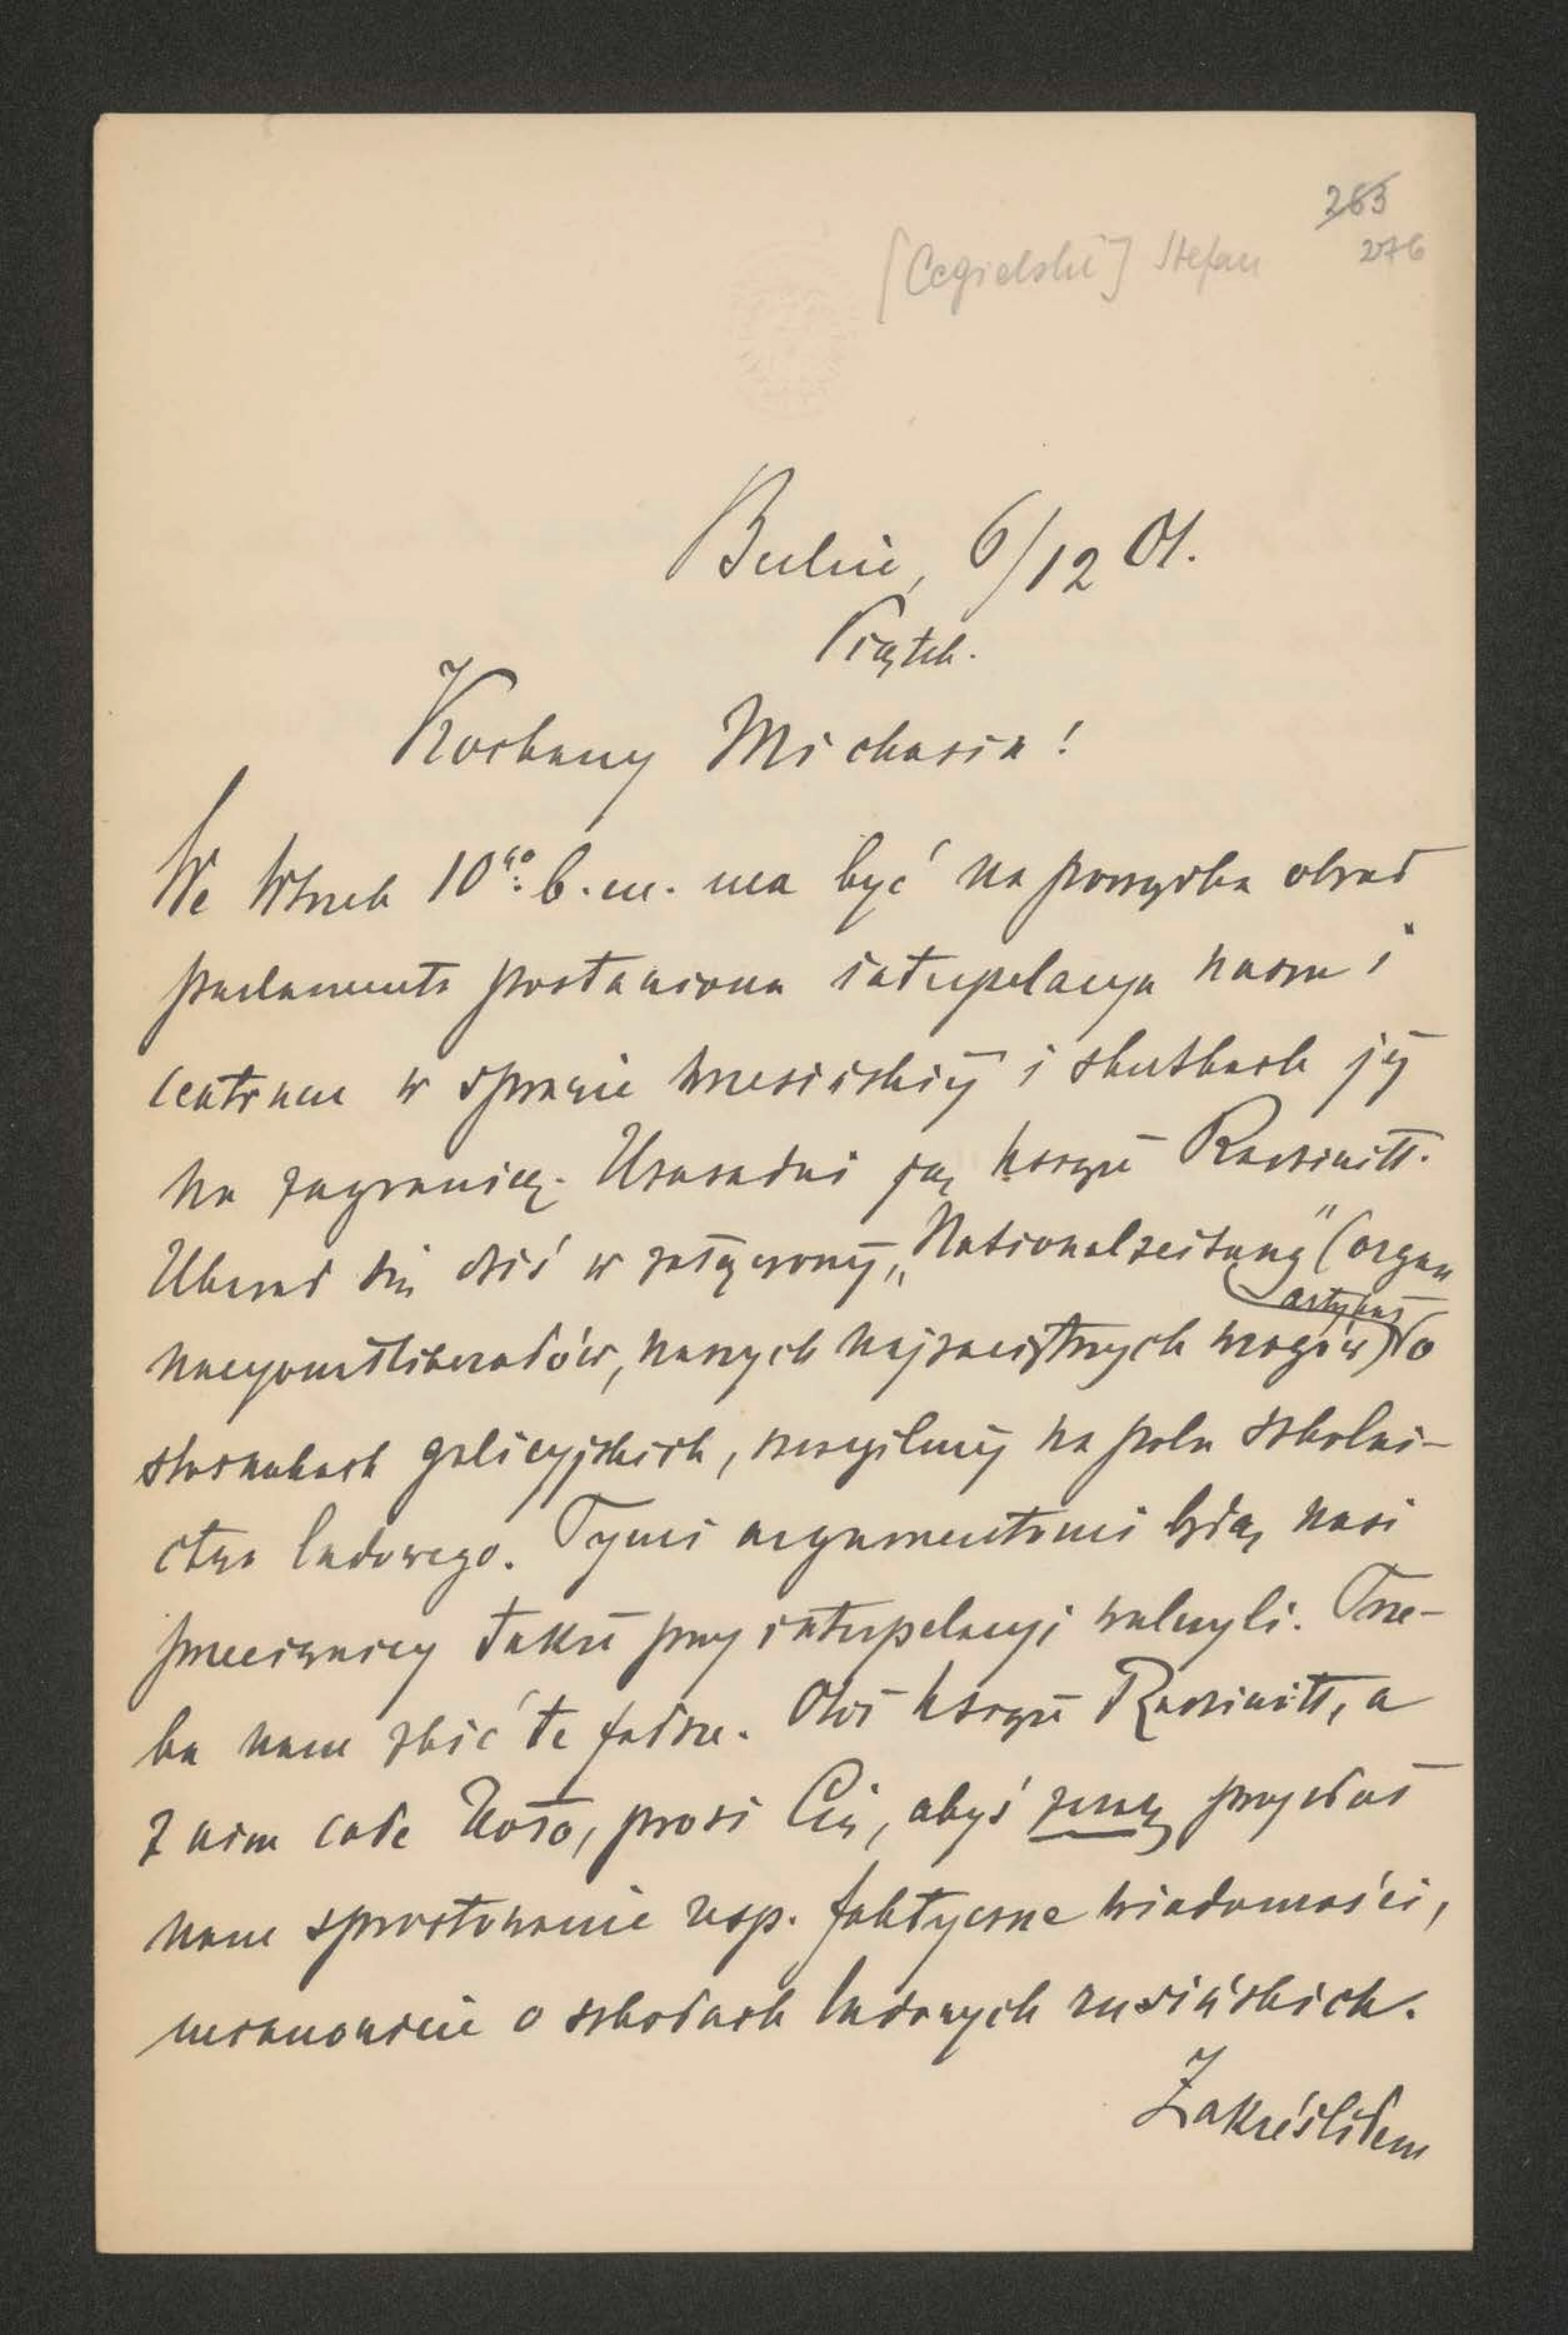 263
276
[Cegielski] Stefan
Berlin, 6/12 01.
Piątek.
Kochany Michasiu!
We Wtorek 10go b.m. ma być na porządku obrad
parlamentu postawiona interpelacya nasza i
centrum w sprawie wrzesińskiej i skutkach jej
na zagranicę. Uzasadni ją książę Radziwiłł.
Ukazał się dziś w załączonej „Nationalzeitung" (organ
nacyonałliberałów, naszych najzaciętszych wrogów) artykuł o
stosunkach galicyjskich, szczególniej na polu szkolni-
ctwa ludowego. Tymi argumentami będą nasi
przeciwnicy także przy interpelacyi walczyli. Trze-
ba nam zbić te fałsze. Otóż książę Radziwiłł, a
z nim całe Koło, prosi Cię, abyś zaraz przysłał
nam sprostowanie resp. faktyczne wiadomości,
mianowicie o szkołach ludowych rusińskich.
Zakreśliłem